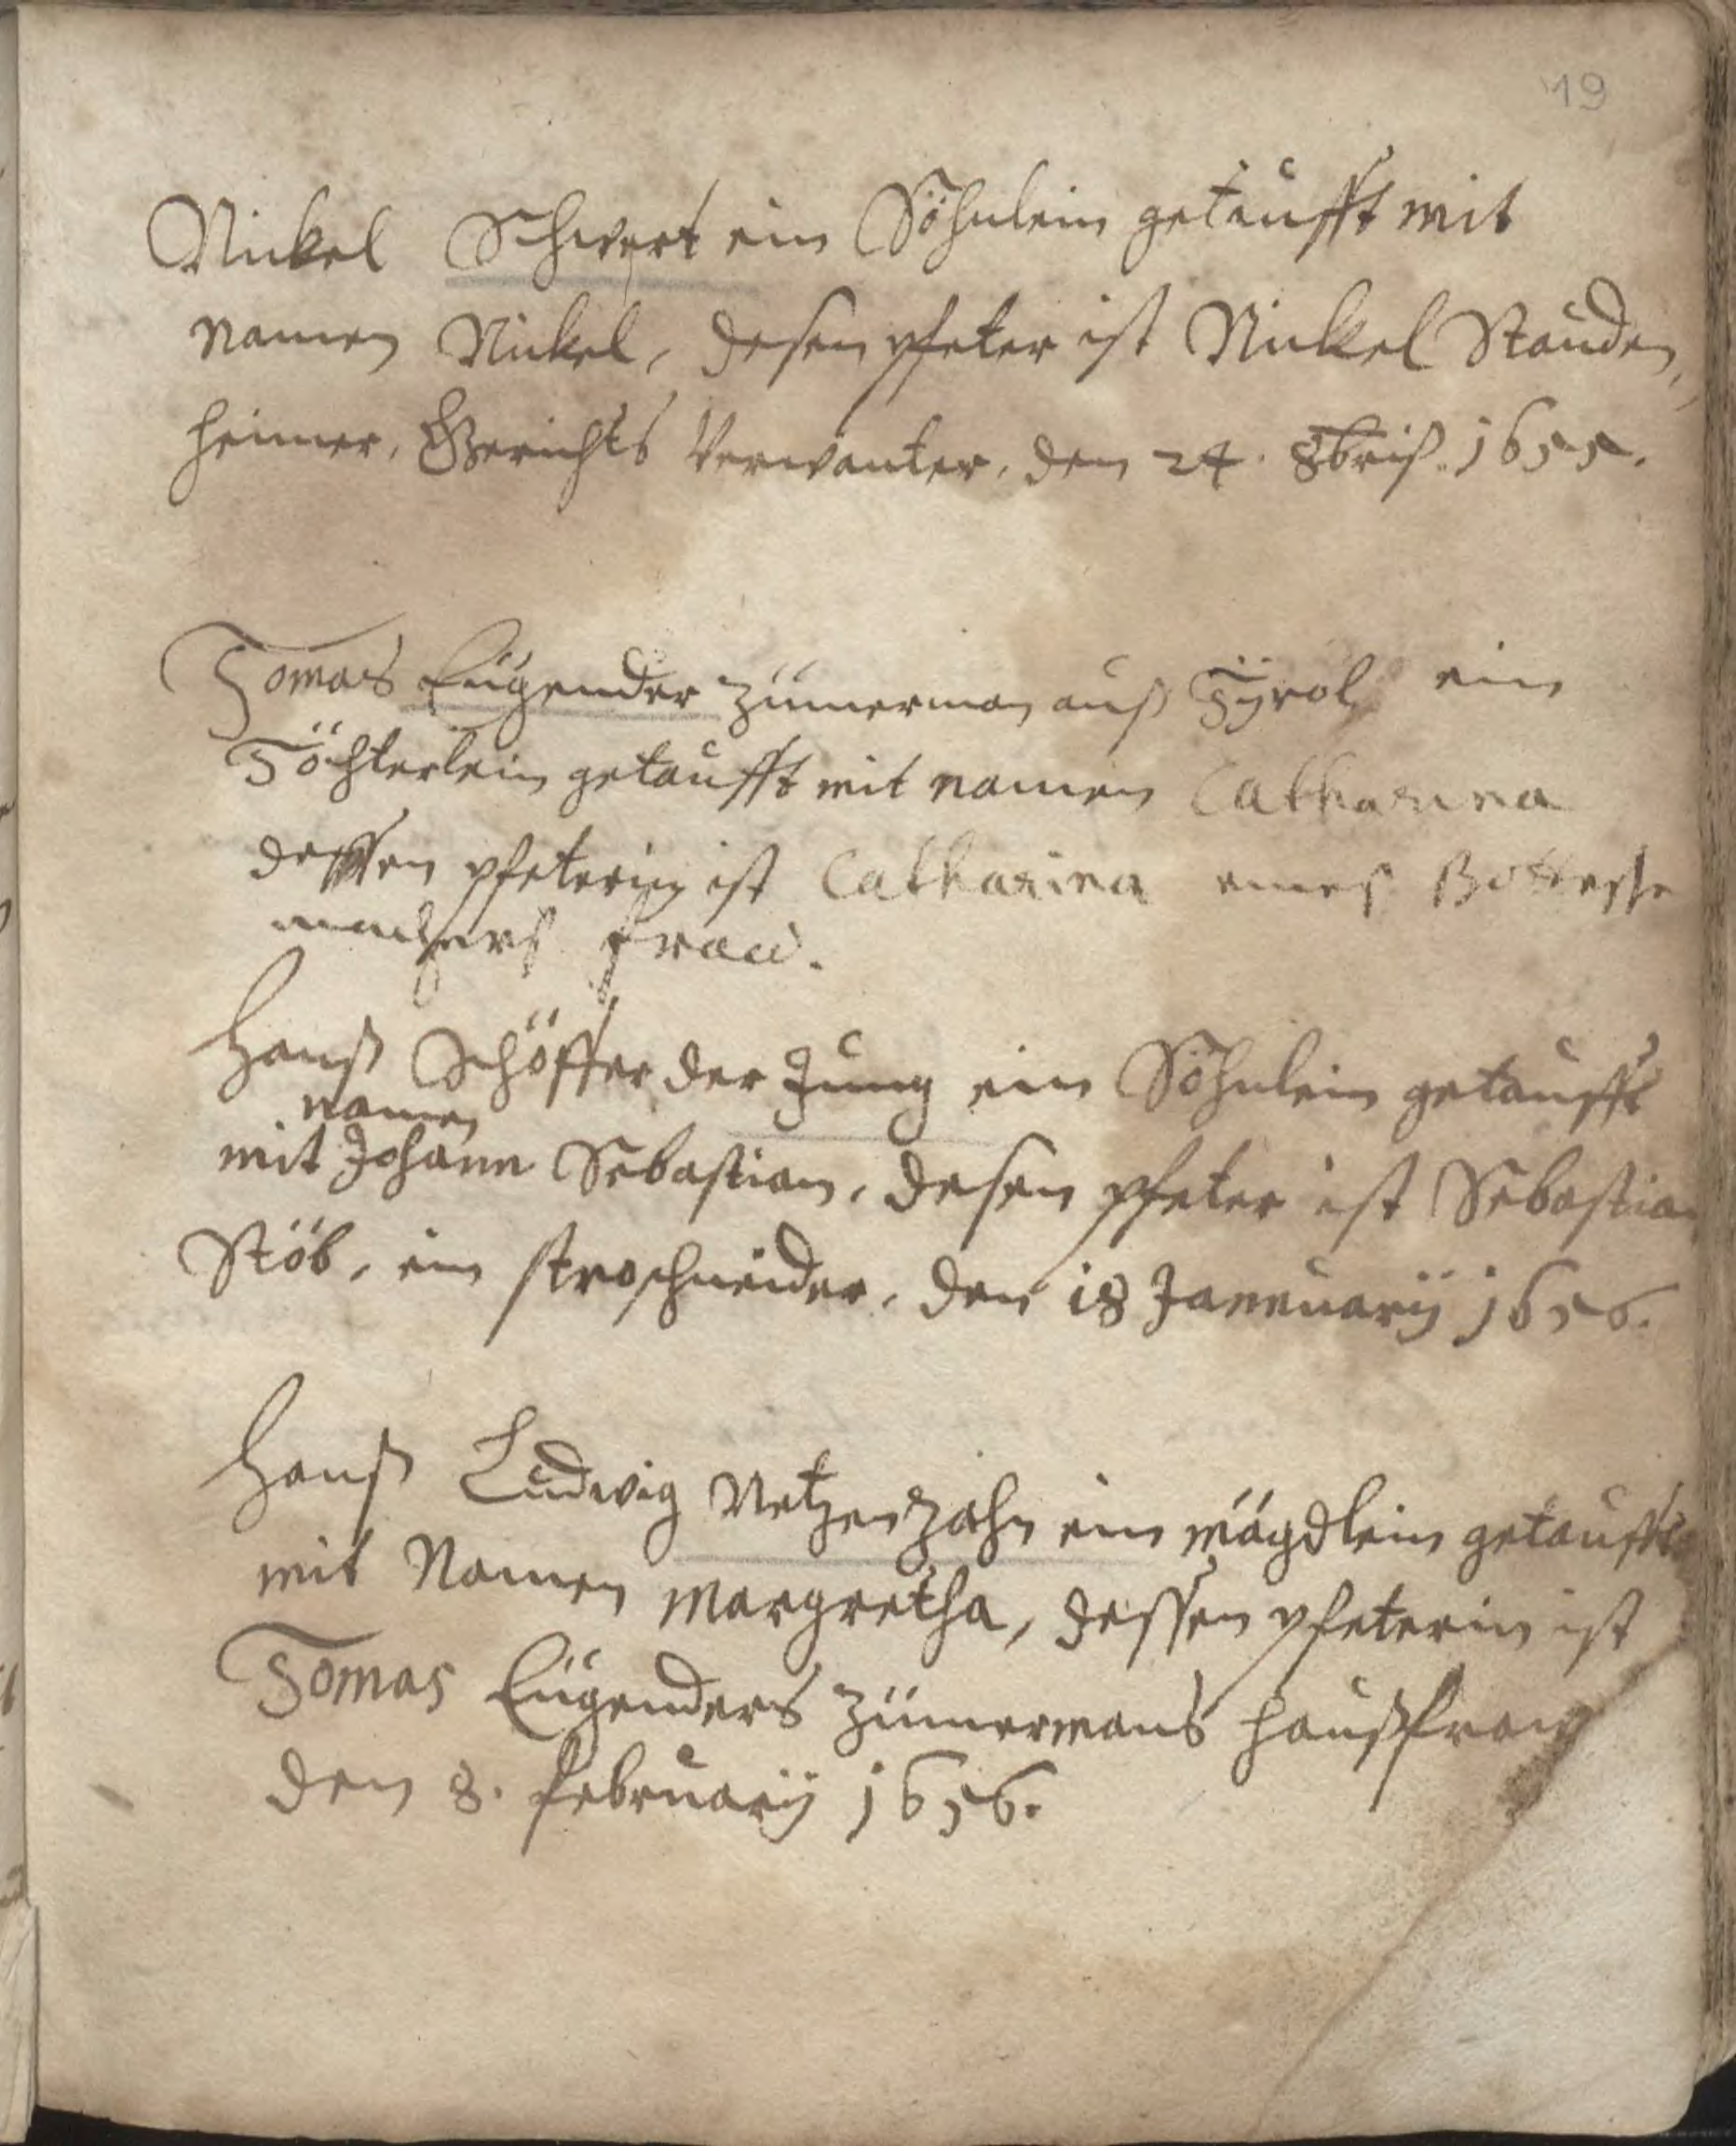 19
Nickel Schwert ein Söhnlein getaufft mit
namen Nickel, desen pfeter ist Nickel Stauden,
heimer, Gerichts Verwanter, den 24. 8bris. 1655.
Tomas Eugender zimmerman auß Tÿrol ein
Töchterlein getaufft mit namen Catharina
dessen pfeterin ist Catharina eines
machers fraw.
Hanß Schöffer der Jung ein Söhnlein getaufft
namen
mit Johann Sebastian, desen pfeter ist Sebastian
Stöb, ein stroschneider, den 18 Januarij 1656.
Hanß Ludwig Netzenzahn ein mägdlein getaufft
mit Namen Margretha, dessen pfeterin ist
Tomas Eugenders zimmermans haußfraw
den 8. februarij 1656.